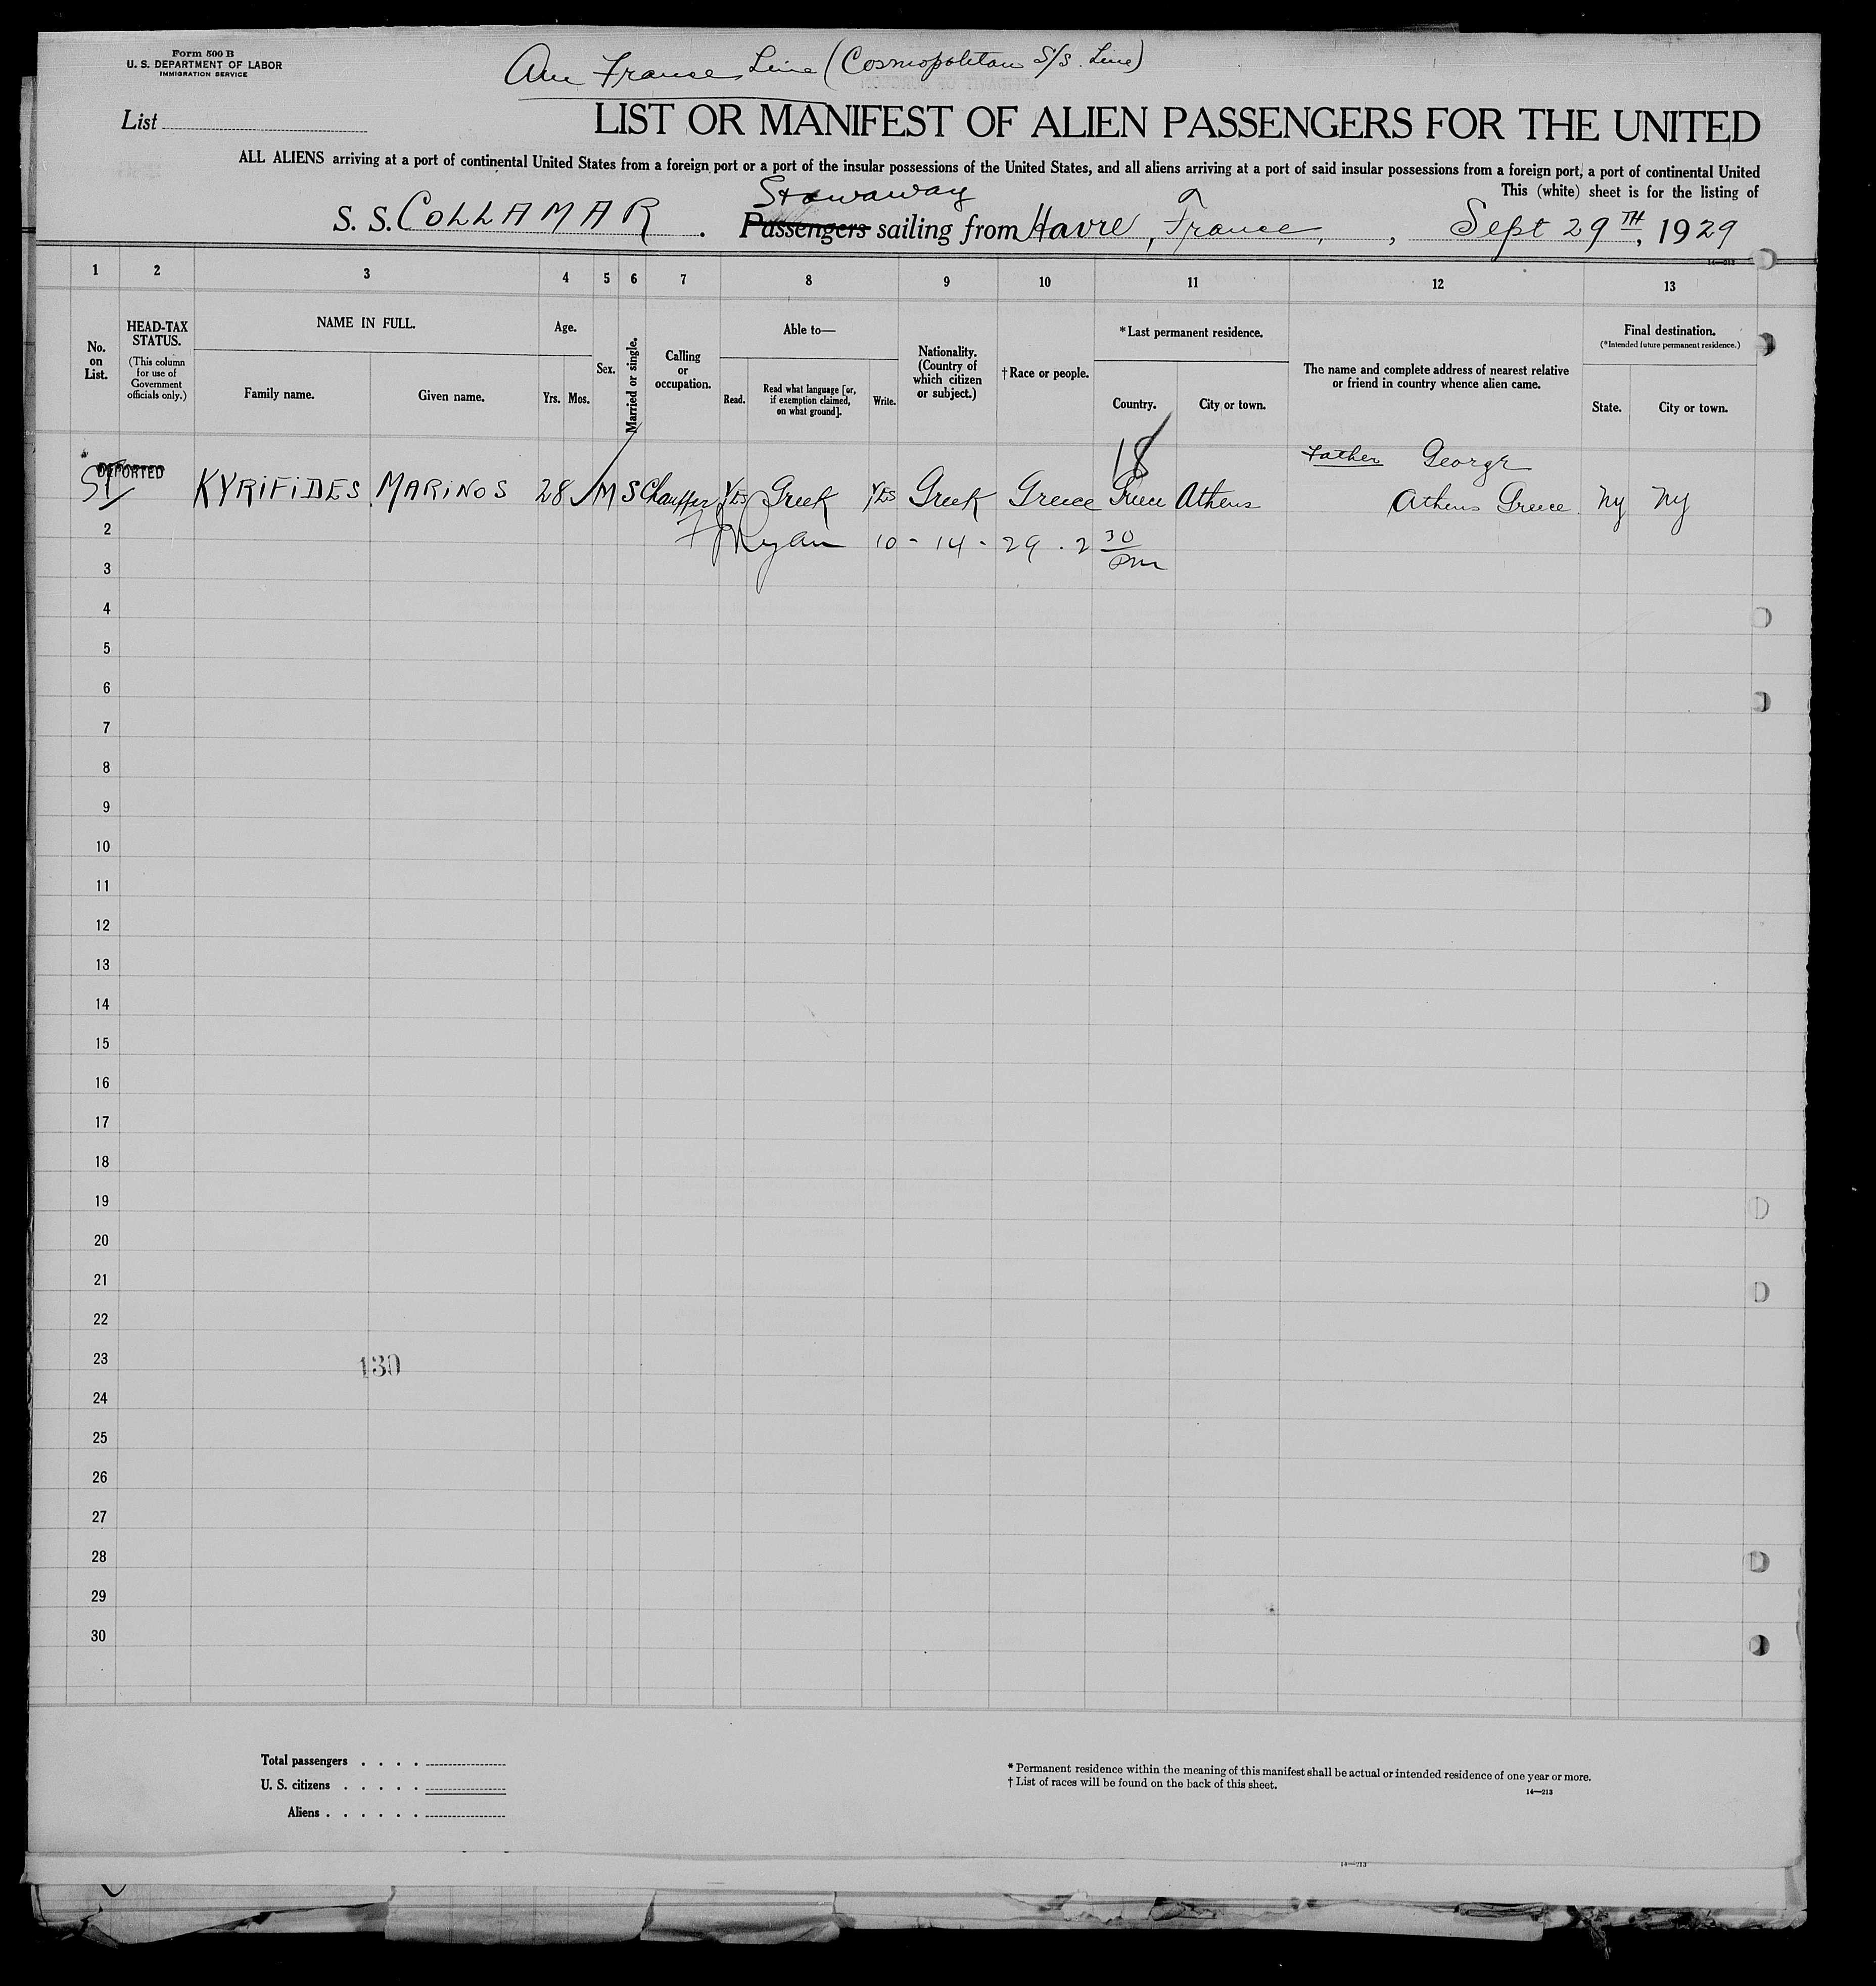 Form 500 B
U. S. DEPARTMENT OF LABOR
IMMIGRATION SERVICE
Am France Line (Cosmopolitan S/S. Line)
List
LIST OR MANIFEST OF ALIEN PASSENGERS FOR THE UNITED
ALL ALIENS arriving at a port of continental United States from a foreign port or a port of the insular possessions of the United States, and all aliens arriving at a port of said insular possessions from a foreign port, a port of continental United
This (white) sheet is for the listing of
Stowaway
S. S. COLLAMAR . Passengers sailing from Havre, France, , Sept 29TH, 1929
14—213
1 2 3 4 5 6 7 8 9 10 11 12 13
No. on List.
HEAD-TAX STATUS.
(This column for use of Government officials only.)
NAME IN FULL.
Family name.
Given name.
Age.
Yrs. Mos.
Sex.
Married or single.
Calling or occupation.
Able to—
Read.
Read what language [or, if exemption claimed, on what ground].
Write.
Nationality. (Country of which citizen or subject.)
†Race or people.
*Last permanent residence.
Country.
City or town.
The name and complete address of nearest relative or friend in country whence alien came.
Final destination.
(*Intended future permanent residence.)
State.
City or town.
18
Father George
DEPORTED
ST KYRIFIDES MARINOS 28 M S Chauffer YES Greek YES Greek Greece Greece Athens Athens Greece. Ny Ny
2 Ryan 10 - 14 - 29 . 2 30 pm
3
4
5
6
7
8
9
10
11
12
13
14
15
16
17
18
19
20
21
22
23
130
24
25
26
27
28
29
30
Total passengers . . . .
U. S. citizens . . . . .
Aliens . . . . . .
* Permanent residence within the meaning of this manifest shall be actual or intended residence of one year or more.
† List of races will be found on the back of this sheet.
14—213
14—213